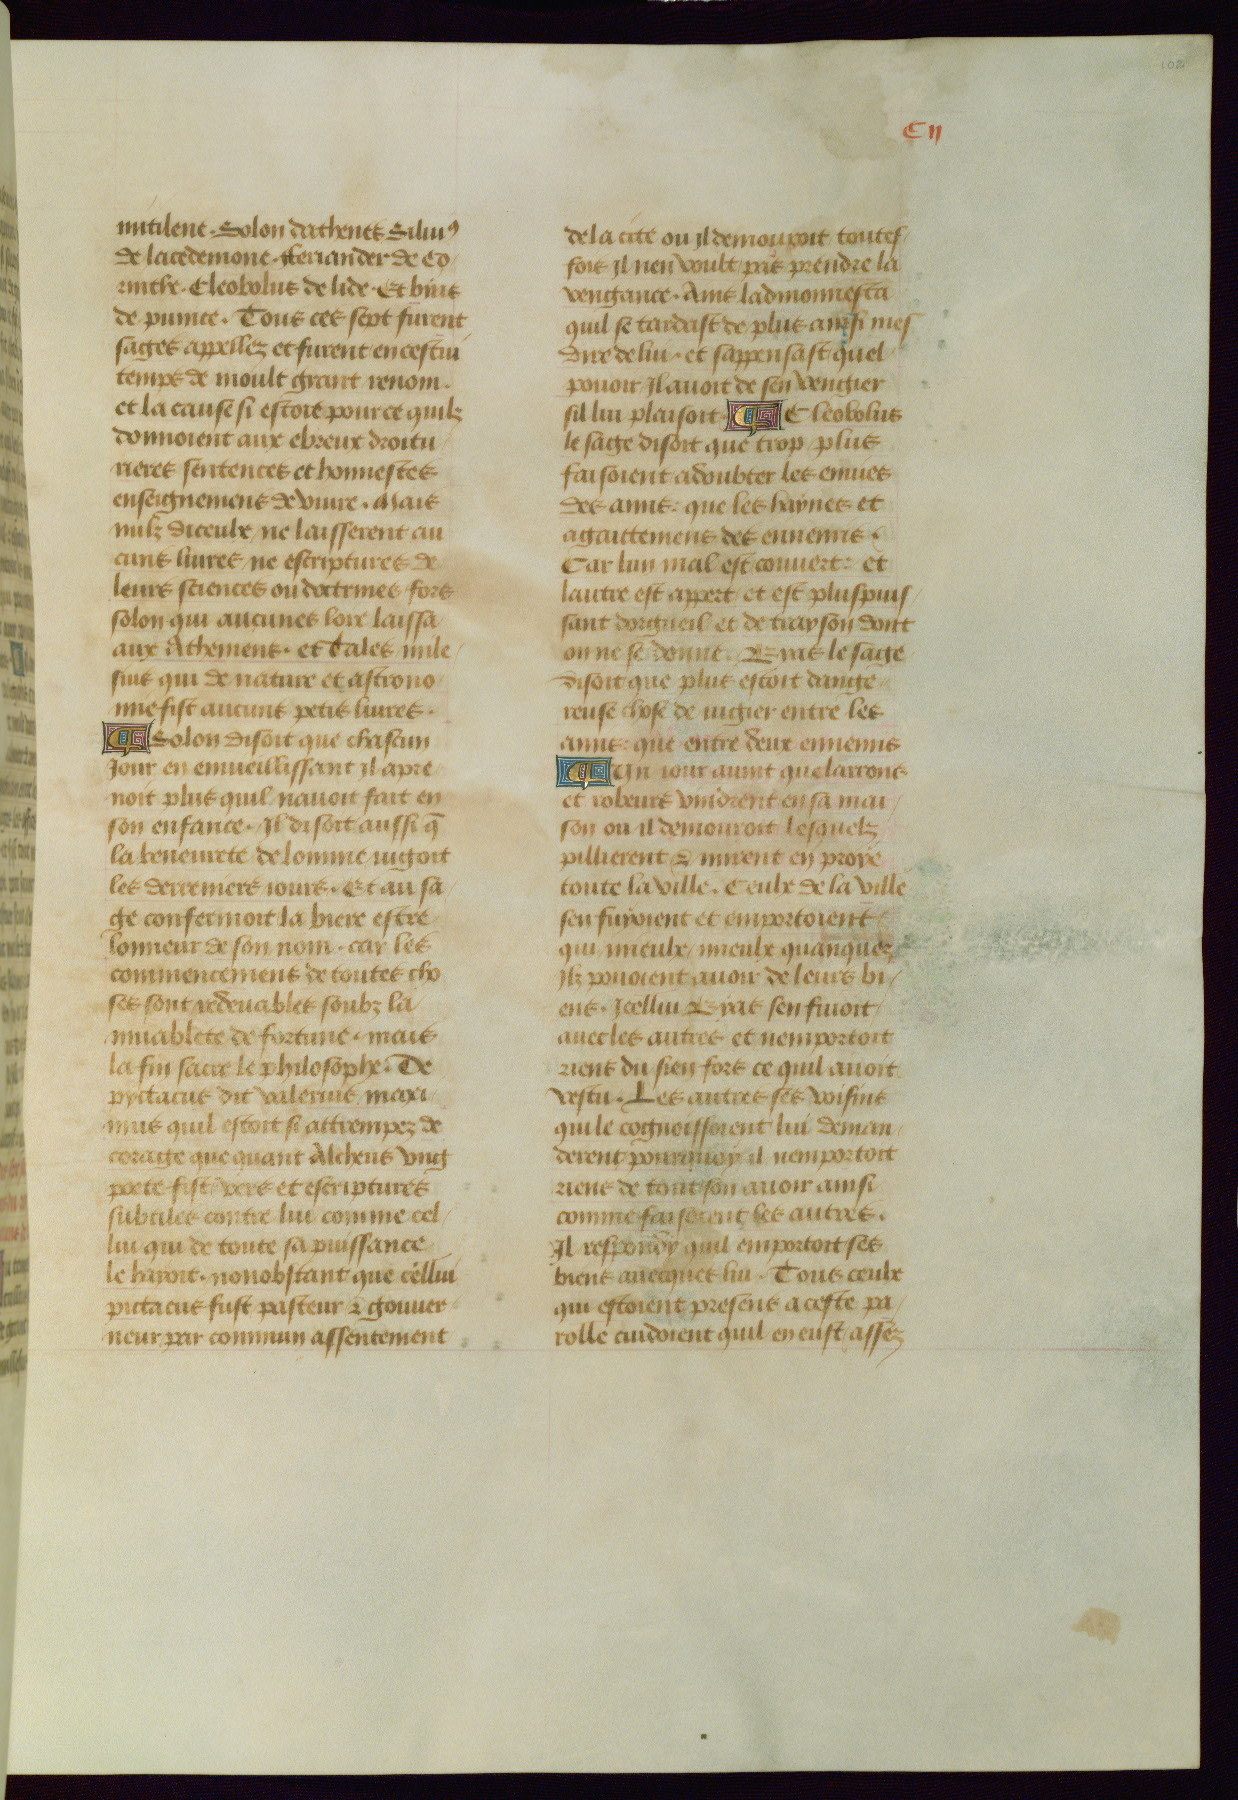 102
C ii
mitilene. Solon dathenes Siliuꝰ
de lacedemone. Periander de Co
rinthe. Cleobolus de lide. Et bius
de prince. Tous ces sept furent
sages appellez et furent en cestui
temps de moult grant renom.
et la cause si estoit pour ce quilz
donnoient aux ebreux droitu/
rieres sentences et honnestes
enseignemens de viure. Mais
nulz diceulx ne laisserent au
cuns liures ne escriptures de
leurs sciences ou doctrines fors
solon qui aucunes loix laissa
aux Atheniens. et Tales mile/
sius qui de nature et astrono
mie fist aucuns petis liures.
Solon disoit que chascun
Jour en enuieillissant il apre
noit plus quil nauoit fait en
son enfance. Il disoit aussi q̄
la beneurete de lomme iugoit
les derreniers iours. Et au sa
ge confermoit la biere estre
lonneur de son nom. car les
commencemens de toutes cho
ses sont redeuables soubz la
muablete de fortune. mais
la fin sacre le philosophe. De
pyctacus dit valerius maxi/
mus quil estoit si attrempez de
corage que quant Alcheus vng
poete fist vers et escriptures
subtiles contre lui comme cel/
lui qui de toute sa puissance
le hayoit. nonobstant que cellui
pictacus fust pasteur ⁊ gouuer
neur par commun assentement
de la cite ou il demouroit toutes/
fois il nen voult pas prendre la
vengance. Ains ladmonnesta
quil se tardast de plus ainsi mes
dire de lui. et sappensast quel
pouoir il auoit de sen vengier
sil lui plaisoit. Cleobolus
le sage disoit que trop plus
faisoient a doubter les enuies
des amis: que les haynes et
agaittemens des ennemis.
Car lun mal est couuert: et
lautre est appert et est plus puis/
sant dorgueil et de trayson dont
on ne se donne. Byas le sage
disoit que plus estoit dange
reuse chose de iugier entre les
amis: que entre deux ennemis
Un iour auint que larrons
et robeurs vindrent en sa mai/
son ou il demouroit lesquelz
pillierent ⁊ mirent en proye
toute la ville. Ceulx de la ville
sen fuyoient et emportoient
qui mieulx mieulx quanquez
ilz pouoient auoir de leurs bi/
ens. Icellui Byas sen fuioit
auec les autres et nemportoit
riens du sien fors ce quil auoit
vestu. Les autres ses voisins
qui le cognoissoient lui deman/
derent pourquoy il nemportoit
riens de tout son auoir ainsi
comme faisoient les autres.
Il respondy quil emportoit ses
biens auecques lui. Tous ceulx
qui estoient presens a ceste pa/
rolle cuidoient quil en eust assez